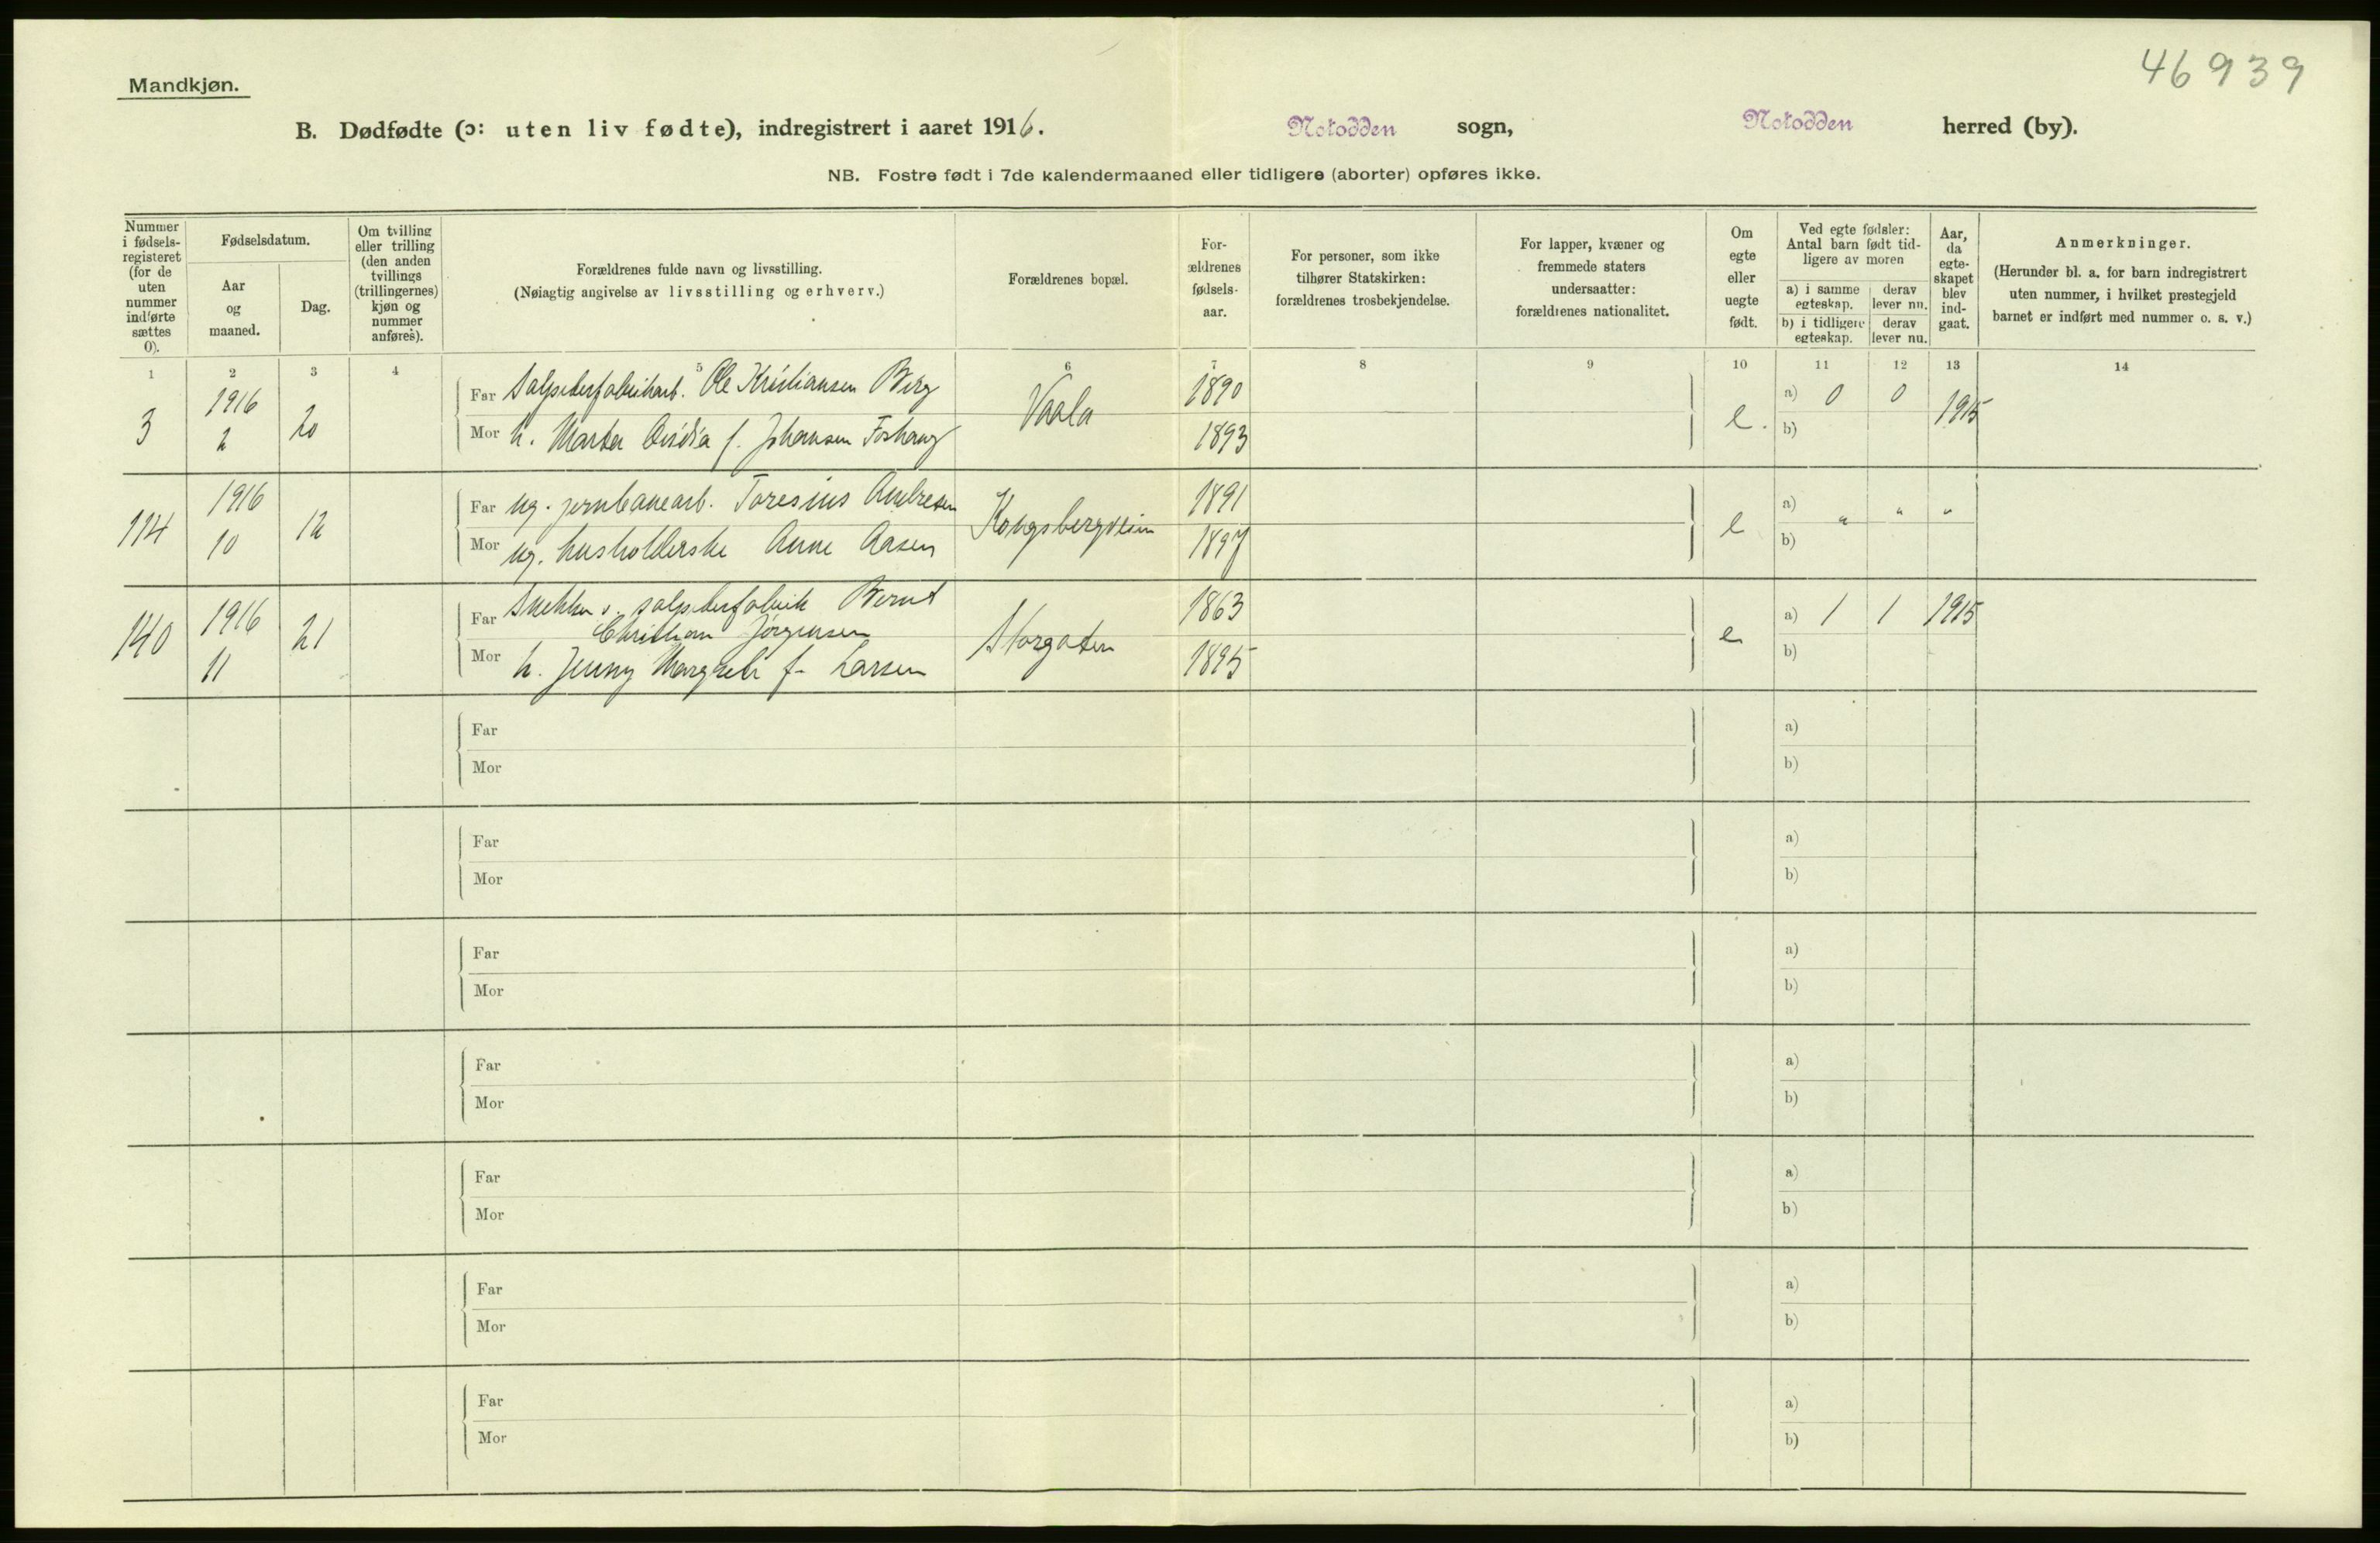 46939
Mandkjøn.
B. Dødfødte (ɔ: uten liv fødte), indregistrert i aaret 1916. Notodden sogn, Notodden herred (by).
NB. Fostre født i 7de kalendermaaned eller tidligere (aborter) opføres ikke.
Nummer
i fødsels-
registeret
(for de
uten
nummer
indførte
sættes
0).
Fødselsdatum.
Aar
og
maaned.
Dag.
Om tvilling
eller trilling
(den anden
tvillings
(trillingernes)
kjøn og
nummer
anføres).
Forældrenes fulde navn og livsstilling.
(Nøiagtig angivelse av livsstilling og erhverv.)
Forældrenes bopæl.
For-
ældrenes
fødsels-
aar.
For personer, som ikke
tilhører Statskirken:
forældrenes trosbekjendelse.
For lapper, kvæner og
fremmede staters
undersaatter:
forældrenes nationalitet.
Om
egte
eller
uegte
født.
Ved egte fødsler:
Antal barn født tid-
ligere av moren
a) i samme
egteskap.
derav
lever nu.
b) i tidligere
egteskap.
derav
lever nu.
Aar,
da
egte-
skapet
blev
ind-
gaat.
Anmerkninger.
(Herunder bl. a. for barn indregistrert
uten nummer, i hvilket prestegjeld
barnet er indført med nummer o. s. v.)
1 2 3 4 5 6 7 8 9 10 11 12 13 14
3 1916 2 20
Far Salpeterfabrikarb. Ole Kristiansen Berg
Mor h. Marta f. Johansen
Vaala
1890
1893
e.
a) 0 0 1915
b)
114 1916 10 12
Far ug. jernbanearb. Toresius Andresen
Mor ug. husholderske Anne Aasen
Kongsbergveien
1891
1897
e
a) " " "
b)
140 1916 11 21
Far Snekker v. salpeterfabrik Bernt
Christian Jørgensen
Mor h. Jenny Margrete f. Larsen
Storgaten
1863
1895
e
a) 1 1 1915
b)
Far a)
Mor b)
Far a)
Mor b)
Far a)
Mor b)
Far a)
Mor b)
Far a)
Mor b)
Far a)
Mor b)
Far a)
Mor b)